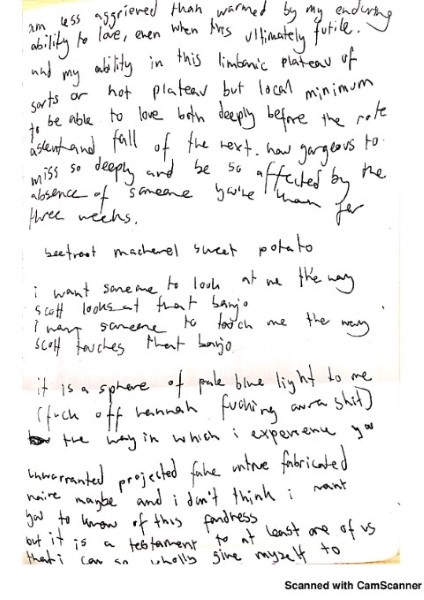 am less aggrieved than warmed by my enduring
ability to love, even when this ultimately futile.
and my ability in this limbanic plateau of
sorts or not plateau but local minimum
to be able to love both deeply before the rote
ascent and fall of the next. how gorgeous to
miss so deeply and be so affected by the
absence of someone you've known for
three weeks.
beetroot mackerel sweet potato
i want someone to look at me the way
scott looks at that banjo
i want someone to touch me the way
scott touches that banjo
it is a sphere of pale blue light to me
(fuck off hannah fucking aura shit)
the way in which i experience you
unwarranted projected fake untrue fabricated
naive maybe and i don't think i want
you to know of this fondness
but it is a testament to at least one of us
that i can so wholly give myself to
Scanned with CamScanner